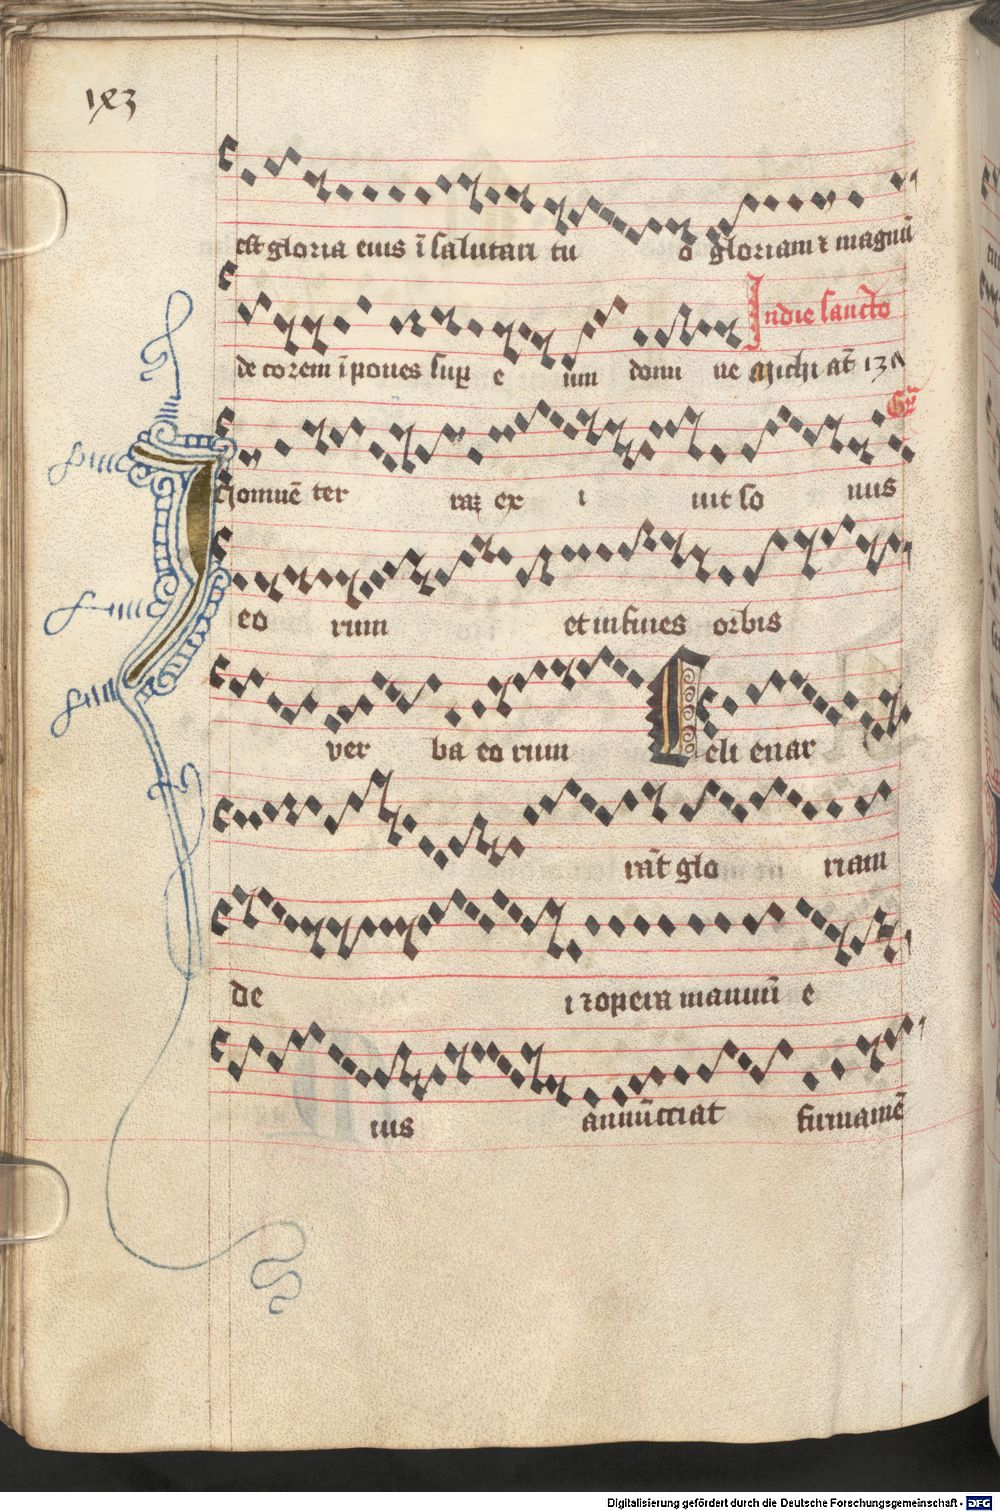 est gloria eius ī salutari tu o gloriam ⁊ magnū
de corem īpones sup e um domi ne
In die sancto
Gr̄
I n omnē ter raꝫ ex i uit so nus
eo rum et in fines orbis
ver ba eo rum C eli enar
rāt glo riam
de i ⁊ opera manuū e
ius annūctiat firmamē
Digitalisierung gefördert durch die Deutsche Forschungsgemeinschaft - DFG